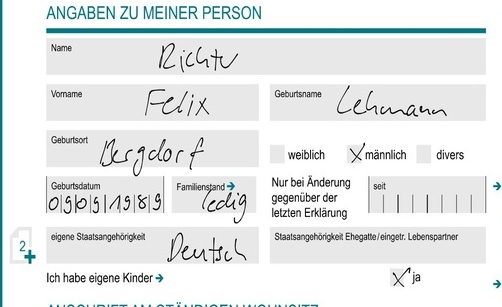 ANGABEN ZU MEINER PERSON
Name
Richter
Vorname
Felix
Geburtsname
Lehmann
Geburtsort
Bergdorf
weiblich X männlich divers
Geburtsdatum
09091989
Familienstand →
ledig
Nur bei Änderung
gegenüber der
letzten Erklärung
seit
2
eigene Staatsangehörigkeit
Deutsch
Staatsangehörigkeit Ehegatte/eingetr. Lebenspartner
Ich habe eigene Kinder → X ja